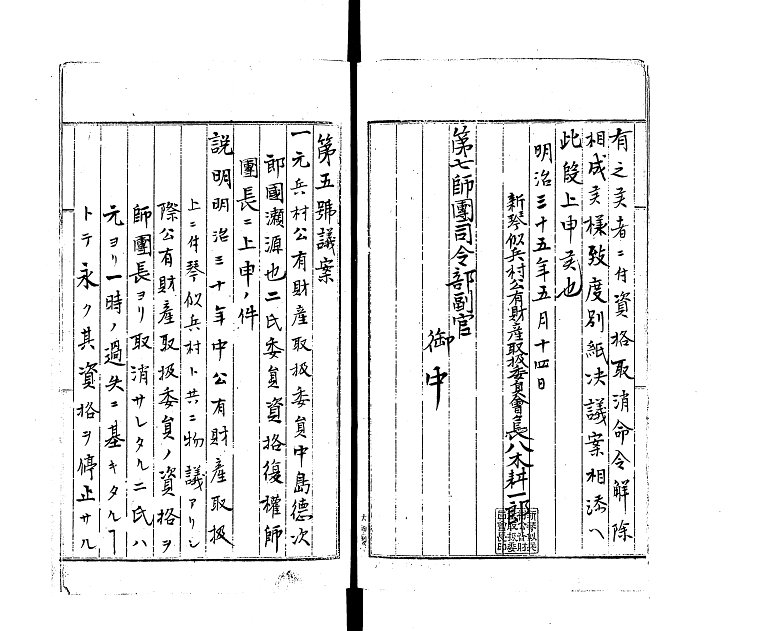 有之候者ニ付資格取消命令解除
相成候樣致度別紙决議案相添ヘ
此段上申候也
明治三十五年五月十四日
新琴似兵村公有財產取扱委員會長八木耕一郎
第七師團司令部副官
御中
第五號議案
一元兵村公有財產取扱委員中島德次
郎國瀨源也二氏委員資格復權師
團長ニ上申ノ件
説明明治三十年中公有財產取扱
上ニ付琴似兵村ト共ニ物議アリシ
際公有財產取扱委員ノ資格ヲ
師團長ヨリ取消サレタルニ氏ハ
元ヨリ一時ノ過失ニ基キタルヿ
トテ永ク其資格ヲ停止サル